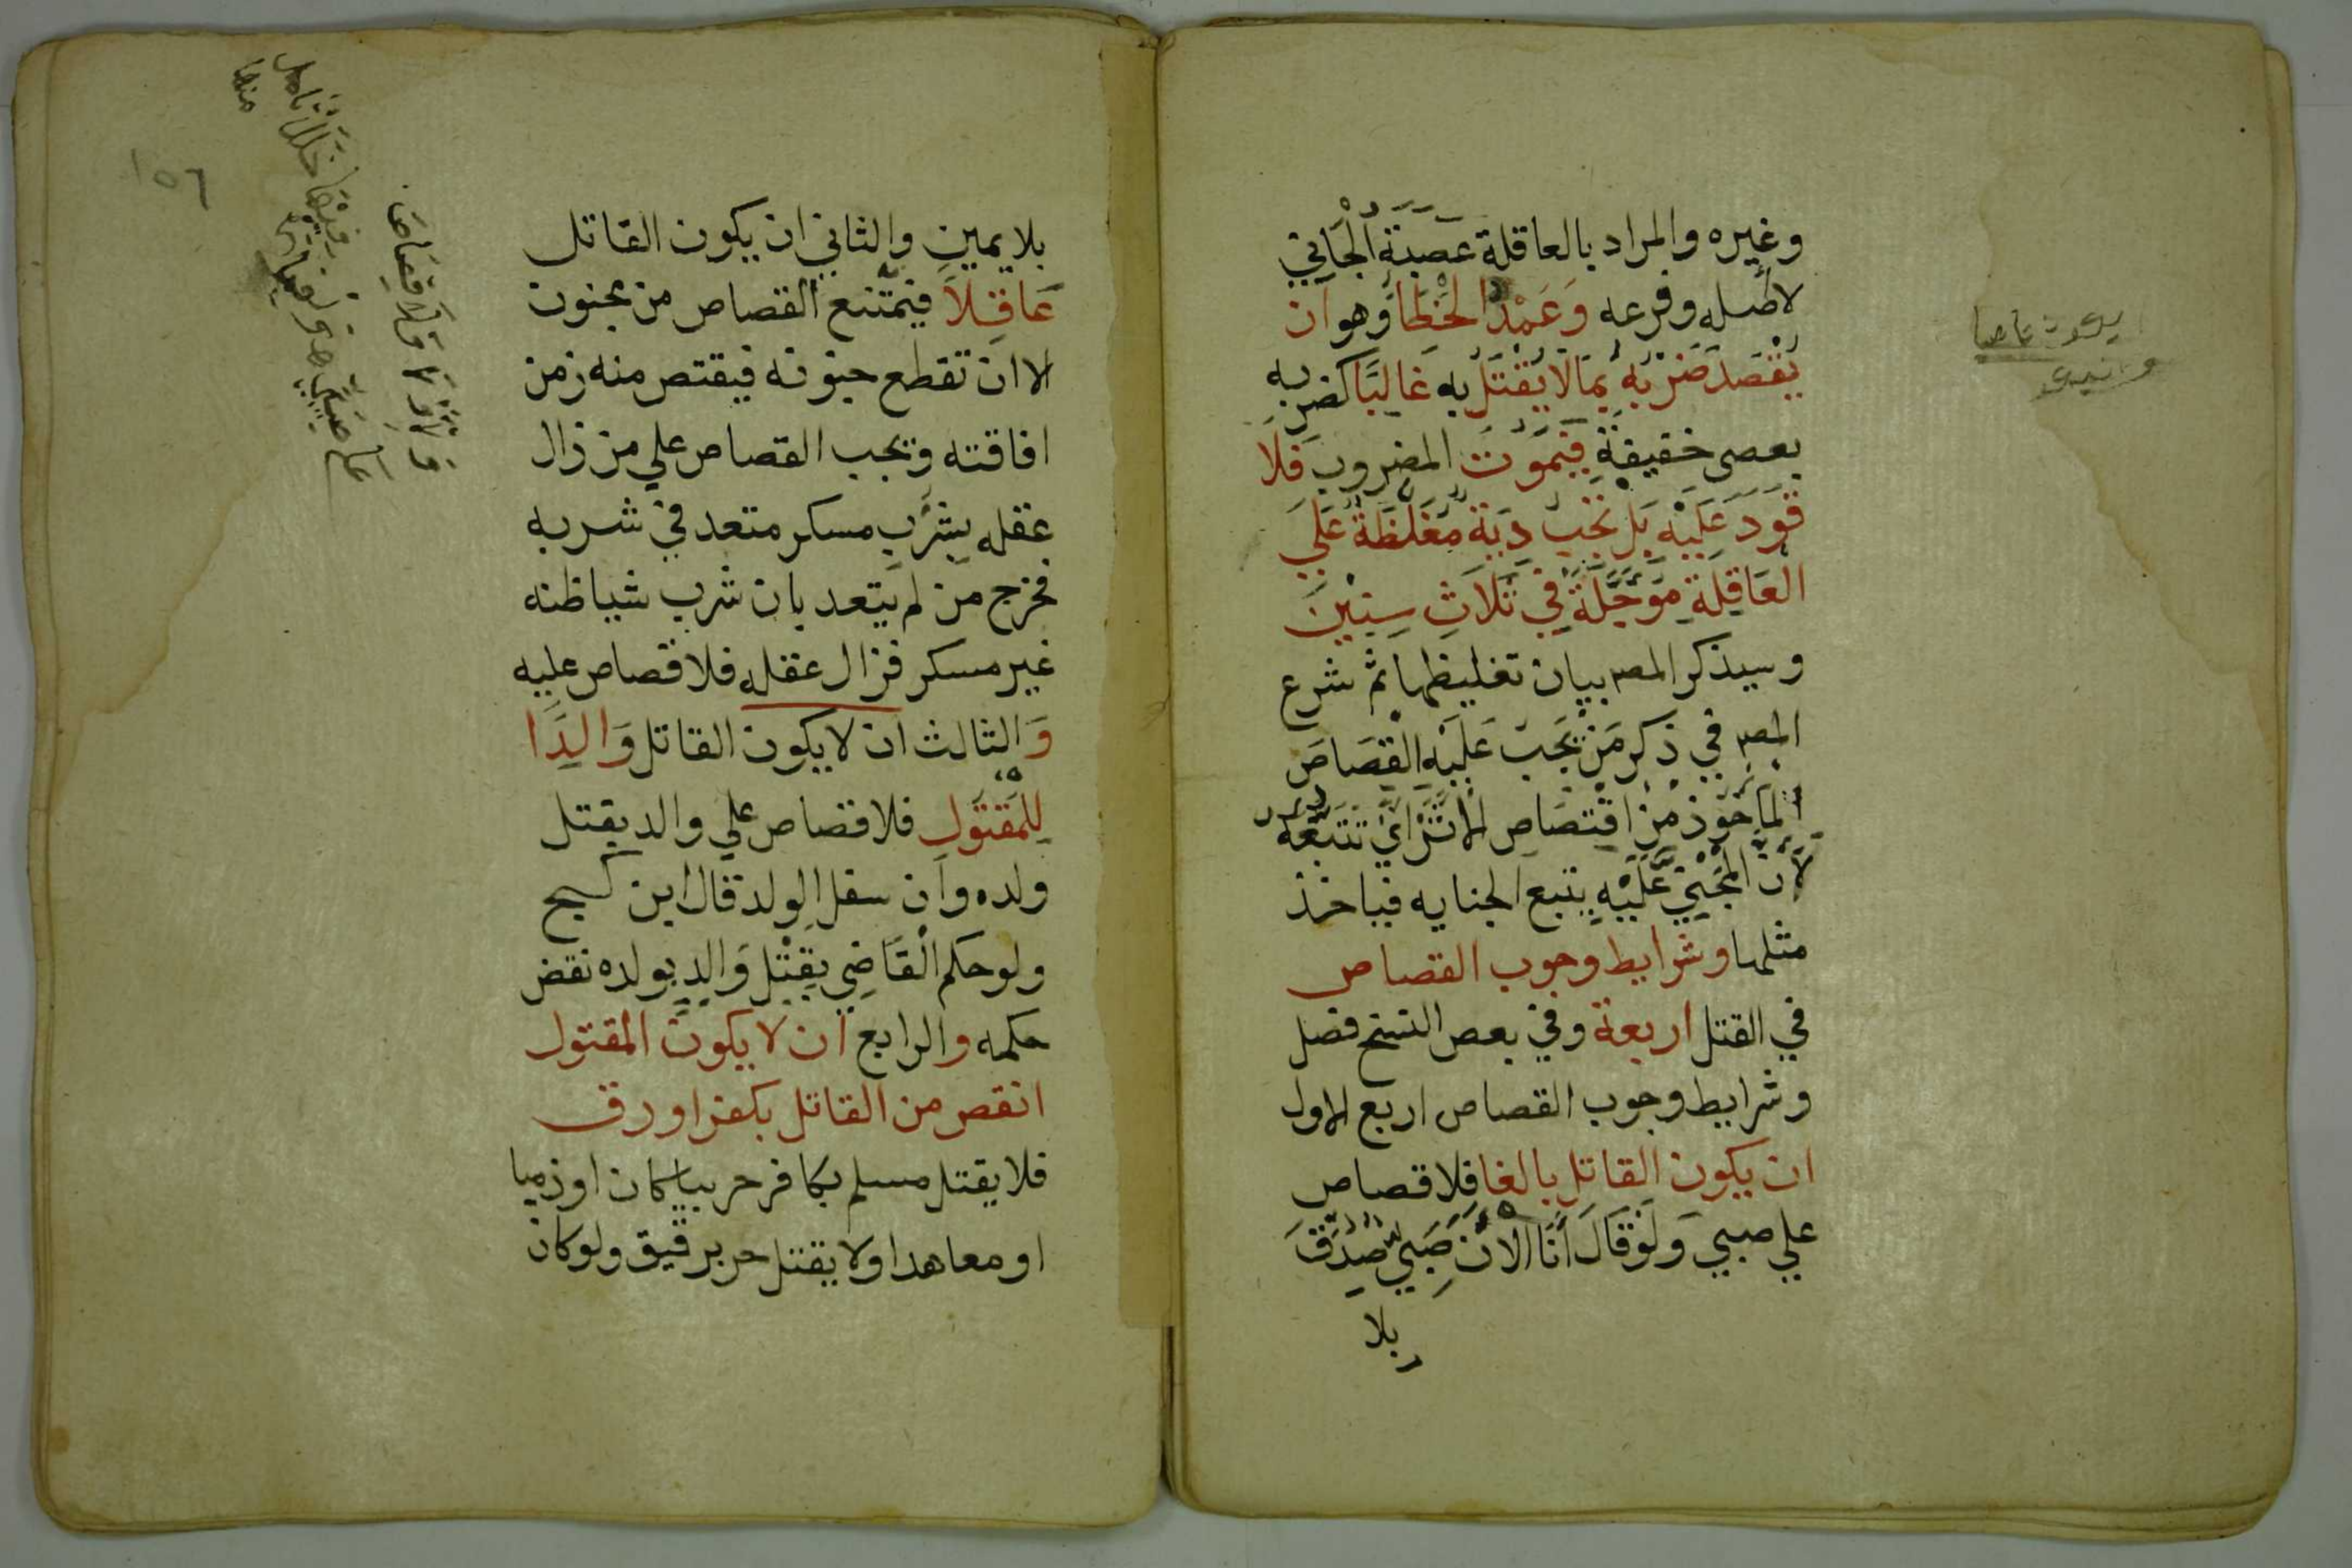 وغيره والمراد بالعاقلة عصبة الجاني
لا أصله وفرعه وَعَمْدُ الخَطَا وهو ان
يَقْصدَ ضَرْبَهُ بِمَا لا يَقْتُلُ به غَالِبًا كضربه
بعصى خفيفة فَيَمُوتَ المضروب فَلَا
قَوَدَ عَلَيْهِ بَل تَجِبُ دِيَةٌ مُغَلَّظَةٌ عَلَي
العَاقِلَةِ مُوَجَّلَةٌ فِي ثَلَاثِ سِنِيْنَ
وسيذكر المصر بيان تغليظها ثم شرع
المصر في ذكر مَنْ يَجب عَلَيْهِ القِصَاصُ
المَأخُوذ مِنْ اقْتِصَاصِ الاثَرْ أَيْ تَتَبُّعه
لأنّ المَجْنِيّ عَلَيْهِ يتبع الجنايه فياخذ
مثلها وشرايط وجوب القصاص
في القتل اربعة وفي بعص النسخ فصل
وشرايط وجوب القصاص اربع الاول
ان يكون القاتل بالغا فلا قصاص
علي صبي وَلَوْ قَالَ أَنَا الأنَ صَبِيٌّ صُدِّقَ
بلا
بلا يمين والثاني ان يكون القاتل
عَاقِلاً فيمتنع القصاص من مجنون
الا ان تقطع جنونه فيقتص منه زمن
افاقته ويجب القصاص علي من زال
عقله بِشُرْبِ مسكر متعد في شربه
فخرج من لم يتعد بان شرب شياظنه
غير مسكر فزال عقله فلا قصاص عليه
وَالثالث ان لا يكون القاتل وَالِدًا
لِلْمَقتُولِ فلا قصاص علي والد يقتل
ولده وان سفل الولد قال ابن كج
ولو حكم القَاضِي بِقَتْلِ وَالِدٍ بولده نقض
حكمه والرابع ان لا يكون المقتول
انقص من القاتل بكفر او رق
فلا يقتل مسلم بكافر حربيا كان او ذميا
او معاهدا ولا يقتل حر برقيق ولو كان
١٥٦